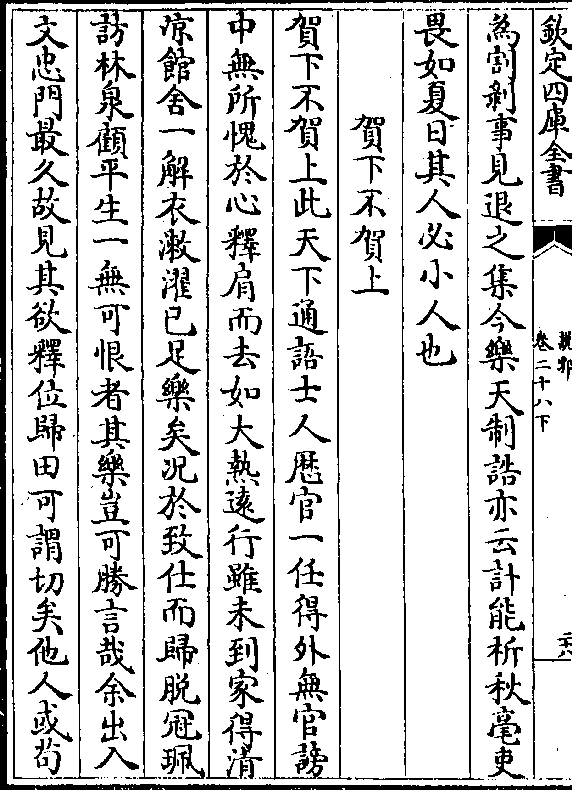 欽定四庫全書
說郛
卷二十八下
二十八
為割剝事見退之集今樂天制誥亦云計能析秋毫吏
畏如夏日其人必小人也
賀下不賀上
賀下不賀上此天下通語士人歷官一任得外無官謗
中無所愧於心釋肩而去如大熱遠行雖未到家得清
凉館舍一解衣漱濯已足樂矣况於致仕而歸脫冠珮
訪林泉顧平生一無可恨者其樂豈可勝言哉余出入
文忠門最久故見其欲釋位歸田可謂切矣他人或苟